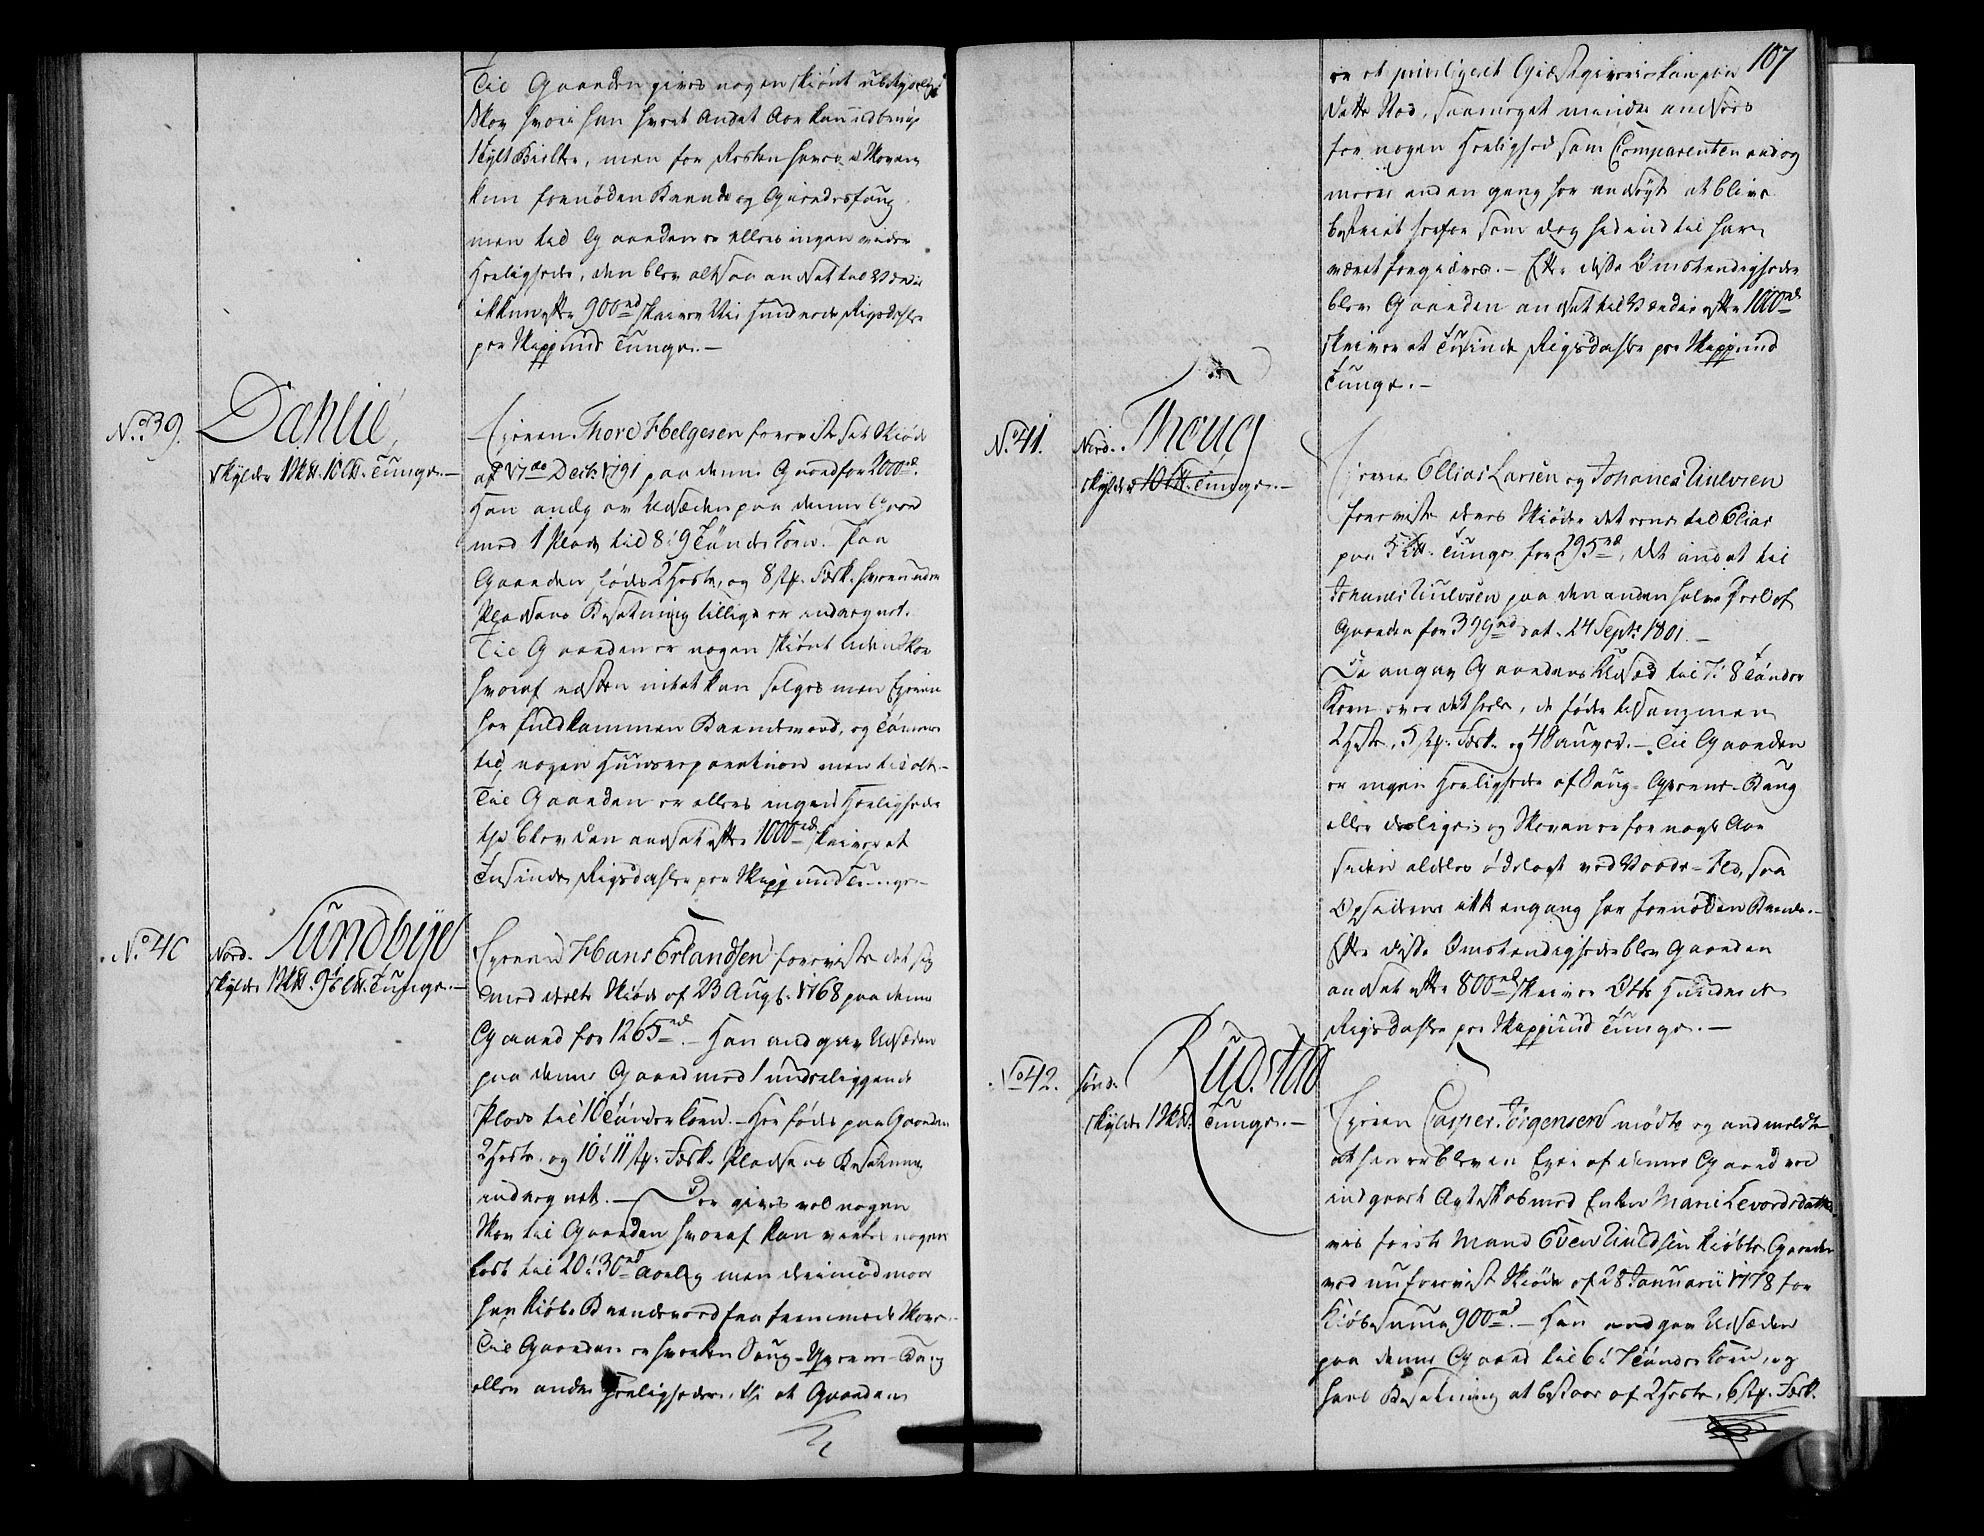 Til Gaarden gives nogen skiønt ubetydelig
Skov hvori han hvert Andet Aar kan udbringe
1 Tylt Bielker, men for Resten haver Skoven
kun fornøden Brænde og Gierdesfang
men til Gaarden er ellers ingen videre
Herligheder, den blev altsaa ansat til Værdie
ikkun efter 900rd skriver Nie Hundrede Rigsdaler
per Skippund Tunge.—
No. 39.
Dahlie,
skylder 1 Sk℔. 10 L℔. Tunge.—
Eieren Thore Helgesen foreviste sit Skiøde
af 17de Decbr. 1791 paa denne Gaard for 2000rd.
Han andgav Udsæden paa denne Gaard
med 1 Plads til 8 à 9 Tønder Korn. Paa
Gaarden fødes 2 Heste, og 8 stk. Fæ, hvorunder
Pladsens Besætning tillige er indregnet.
Til Gaarden er nogen skiønt liden Skov
hvoraf intet kan selges men Eieren
har fuldkommen Brændeved, og Tømmer
til nogen Huusreparation men til alt.
Til Gaarden er ellers ingen Herligheder
thi blev den ansat efter 1000rd skriver et
Tusinde Rigsdaler per Skippund Tunge.—
No. 40
Nord. Sundbye
skylder 1 Sk℔. 9½ L℔. Tunge.—
Eieren Hans Erlandsen foreviste det sig
meddeelte Skiøde af 23 Augt. 1768 paa denne
Gaard for 1265rd.— Han andgav Udsæden
paa denne Gaard med 1 underliggende
Plads til 10 Tønder Korn.— Her fødes paa Gaarden
2 Heste og 10 à 11 stk. Fæ Pladsens Besætning
indregnet.— Der gives vel nogen
Skov til Gaarden hvoraf kan ventes nogen
Last til 20 à 30rd aarlig men derimod maae
han kiøbe Brændeved fra fremmede Skove.—
Til Gaarden er hverken Saug- Qværne- Brug
eller andre Herligheder, thi at Gaarden
107
er et privilegeret Giestgiverie kan paa
dette Sted, saameget mindre ansees
for nogen Herlighed som Comparenten endog
meere end en gang har ansøgt at blive
befriet herfor som dog hidindtil har
været forgieves.— Efter disse Omstendigheder
blev Gaarden ansat til Værdie efter 1000rd
skriver et Tusinde Rigsdaler per Skippund
Tunge.—
No. 41.
Nord. Thoug
skylder 10 L℔. Tunge.—
Eierne Ellias Larsen og Johanes Tiulvsen
foreviste deres Skiøder det eene til Elias
paa 5 L℔. Tunge for 295rd, det andet til
Johanes Tiulvsen paa den anden halve Deel af
Gaarden for 399rd dat. 24 Septr. 1801.—
De angav Gaardens Udsæd til 7 à 8 Tønder
Korn over det hele, de føde tilsammen
2 Heste, 5 stk. Fæ og 4 Sauger.— Til Gaarden
er ingen Herligheder af Saug- Qværne- Brug
eller desligeste og Skoven er for nogle Aar
siden aldeles ødelagt ved Vaade-Ild, saa
Opsidderne ikke engang har fornøden Brænde.—
Efter disse Omstendigheder blev Gaarden
ansat efter 800rd skriver Otte Hundrede
Rigsdaler per Skippund Tunge.—
No. 42.
sønd. Rudstad
skylder 1 Sk℔. Tunge.—
Eieren Casper Jørgensen mødte og andmeldte
at han er bleven Eier af denne Gaard ved
indgaaet Ægteskab med Enken Marie Levordsdatter
hvis første Mand Even Tiulsen kiøbte Gaarden
ved nu forevist Skiøde af 28 Januarii 1778 for
Kiøbesumma 900rd.— Han andgav Udsæden
paa denne Gaard til 6 à 7 Tønder Korn, og
hans Besætning at bestaae af 2 Heste, 6 stk. Fæ